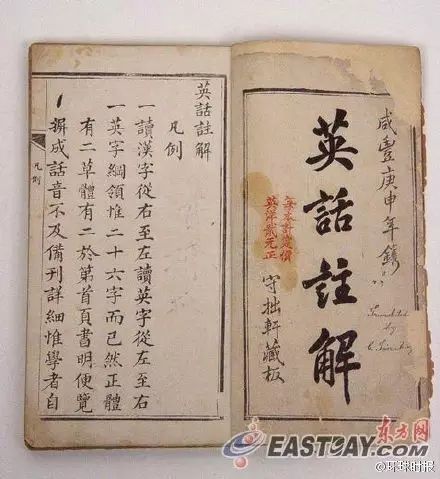 咸豐庚申年鐫
英話註解
每本計定價
英洋貳元正
守拙軒藏板
Translated
by
英話註解
凡例
一讀漢字從右至左讀英字從左至右
一英字綱領惟二十六字而已然正體
有二草體有二於第首頁書明便覽
摒成話音不及備刊詳細惟學者自
凡例
EASTDAY.COM
东方网
@环球时报